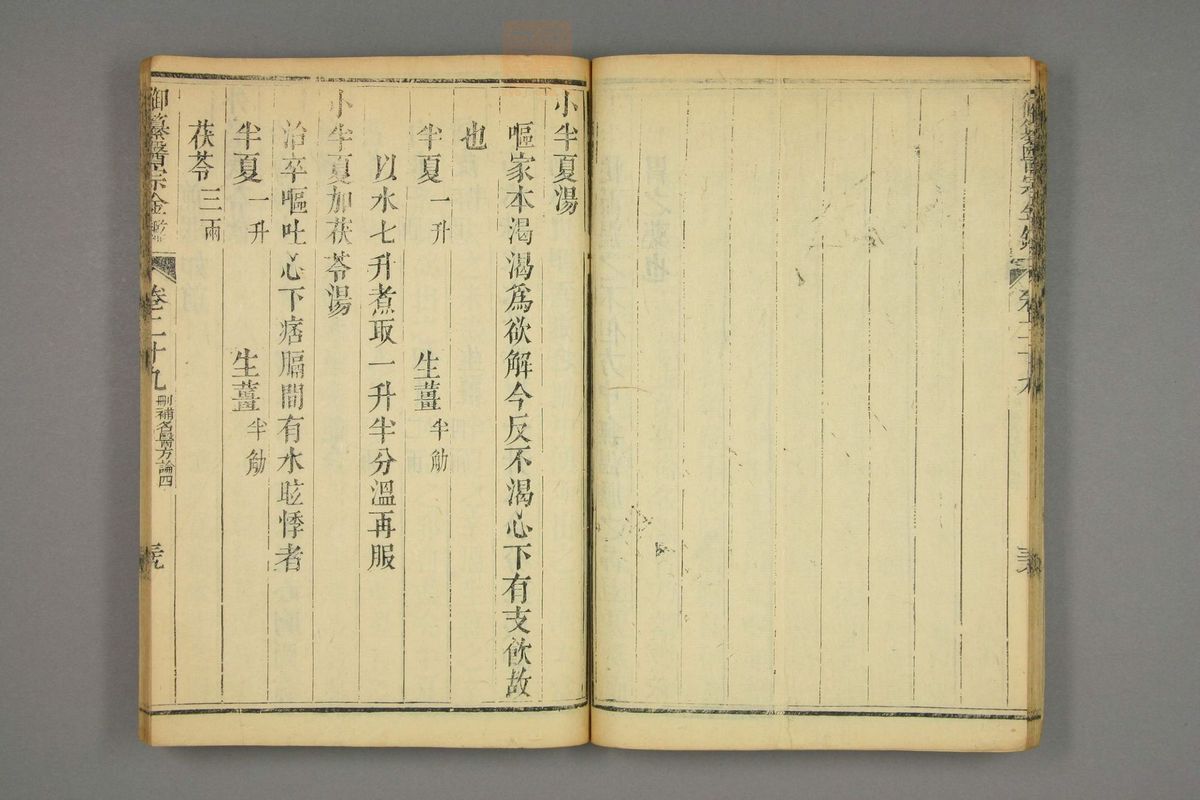 小半夏湯
嘔家本渴渴爲欲解今反不渴心下有支飲故
也
半夏一升 生薑半觔
以水七升煮取一升半分溫再服
小半夏加茯苓湯
治卒嘔吐心下痞膈間有水眩悸者
半夏一升 生薑半觔
茯苓三兩
御纂醫宗金鑑 卷二十九 刪補名醫方論四